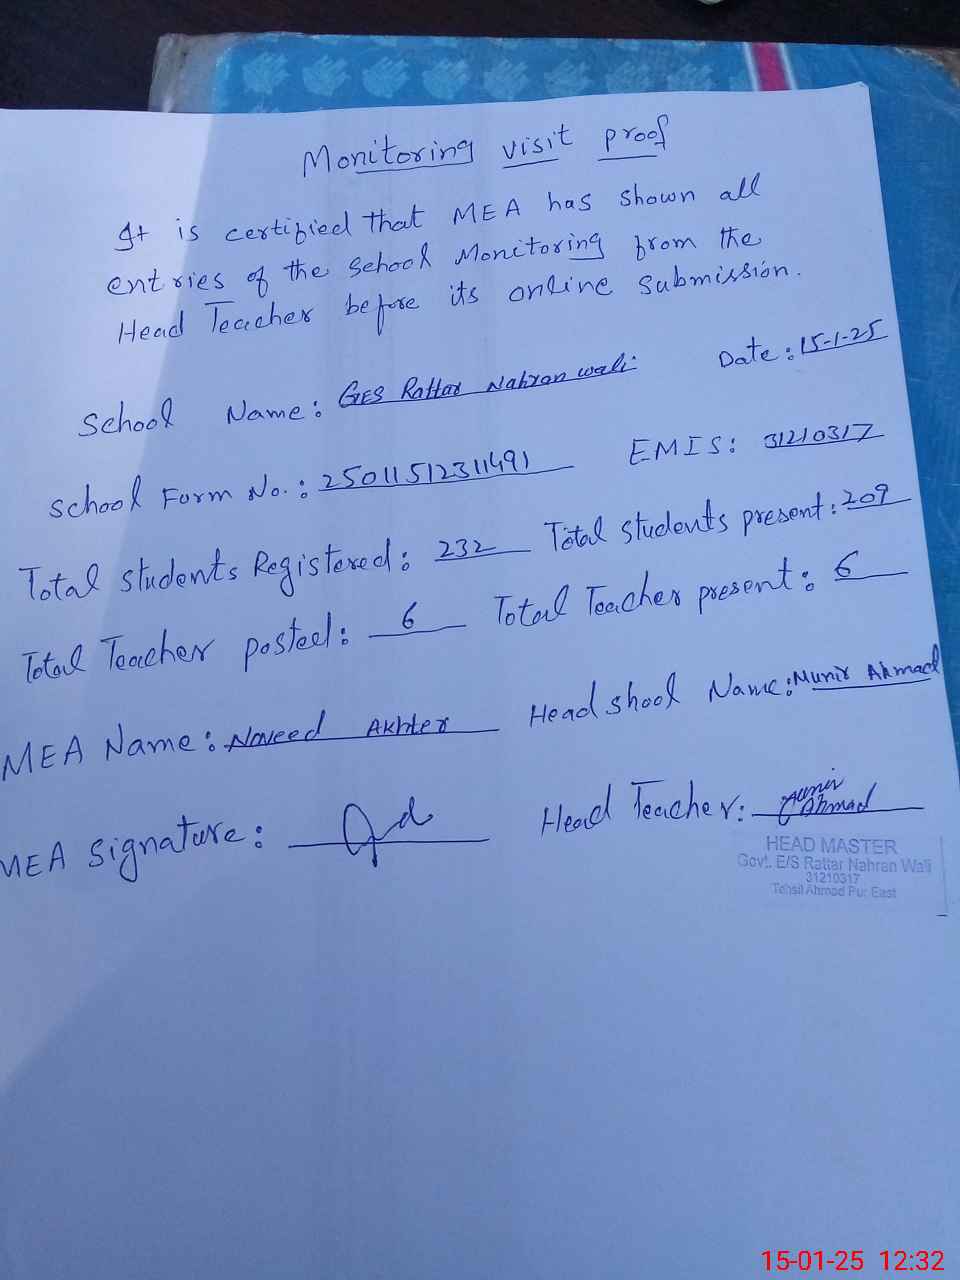 Monitoring visit proof
It is certified that MEA has shown all
entries of the School Monitoring from the
Head Teacher before its online submission.
School Name: GES Rattar Nahran wali Date: 15-1-25
School Form No.: 25011512311491 EMIS: 31210317
Total students Registered: 232 Total students present: 209
Total Teacher posted: 6 Total Teacher present: 6
MEA Name: Naveed Akhter Head shool Name: Munir Ahmad
MEA Signature: Head Teacher: Munir Ahmad
HEAD MASTER
Govt. E/S Rattar Nahran Wali
31210317
Tehsil Ahmad Pur East
15-01-25 12:32